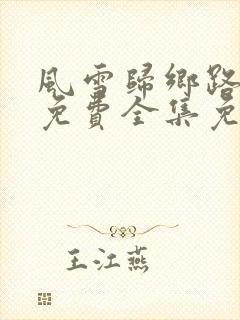 風雪歸鄉路
免費全集免
王江燕